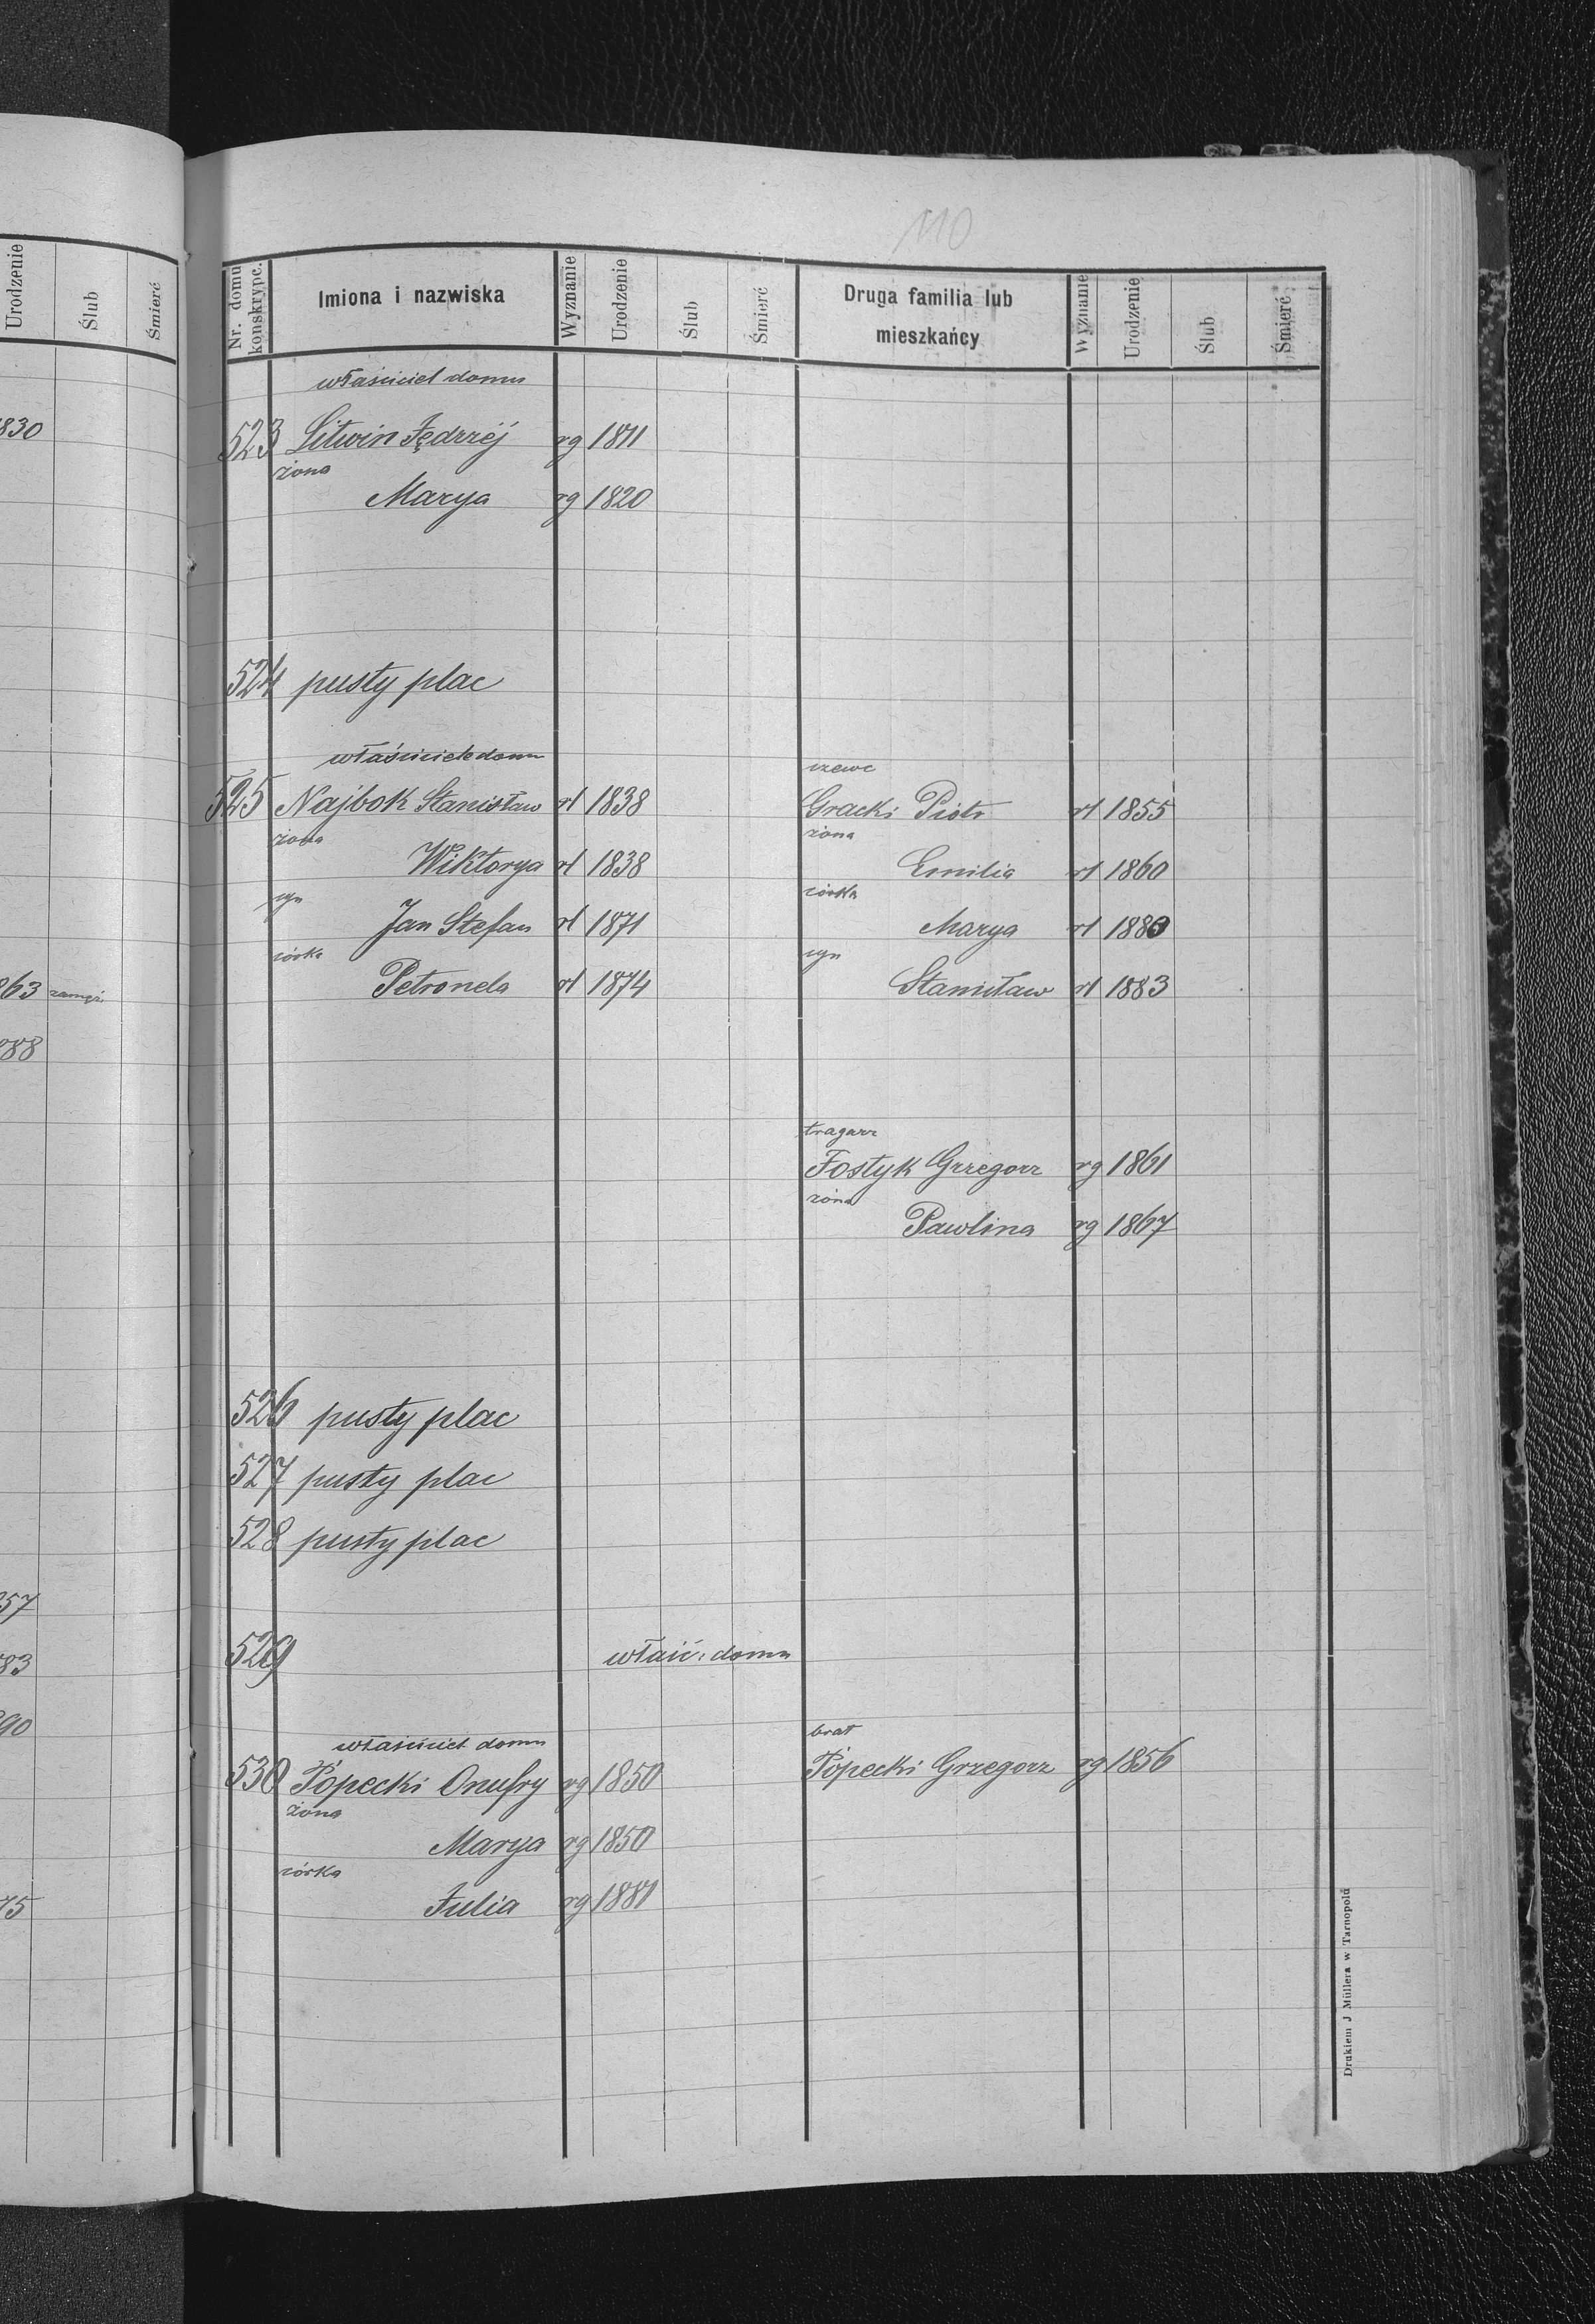 110
Urodzenie Ślub Śmierć
Nr. domu konskrypc. Imiona i nazwiska Wyznanie Urodzenie Ślub Śmierć Druga familia lub mieszkańcy Wyznanie Urodzenie Ślub Śmierć
właściciel domu
830
523 Litwin Jędrzéj rg 1811
żona
Marya rg 1820
524 pusty plac
właściciel domu
szewc
525 Najbok Stanisław rł 1838 Gracki Piotr rł 1855
żona żona
Wiktorya rł 1838 Emilia rł 1860
syn córka
Jan Stefan rł 1871 Marya rł 1880
córka syn
863 zamęż. Petronela rł 1874 Stanisław rł 1883
888
tragarz
Fostyk Grzegorz rg 1861
żona
Pawlina rg 1867
526 pusty plac
527 pusty plac
528 pusty plac
857
83 529 właść. domu
90
właściciel domu brat
530 Popecki Onufry rg 1850 Popecki Grzegorz rg 1856
żona
Marya rg 1850
córka
75 Julia rg 1881
Drukiem J Müllera w Tarnopold